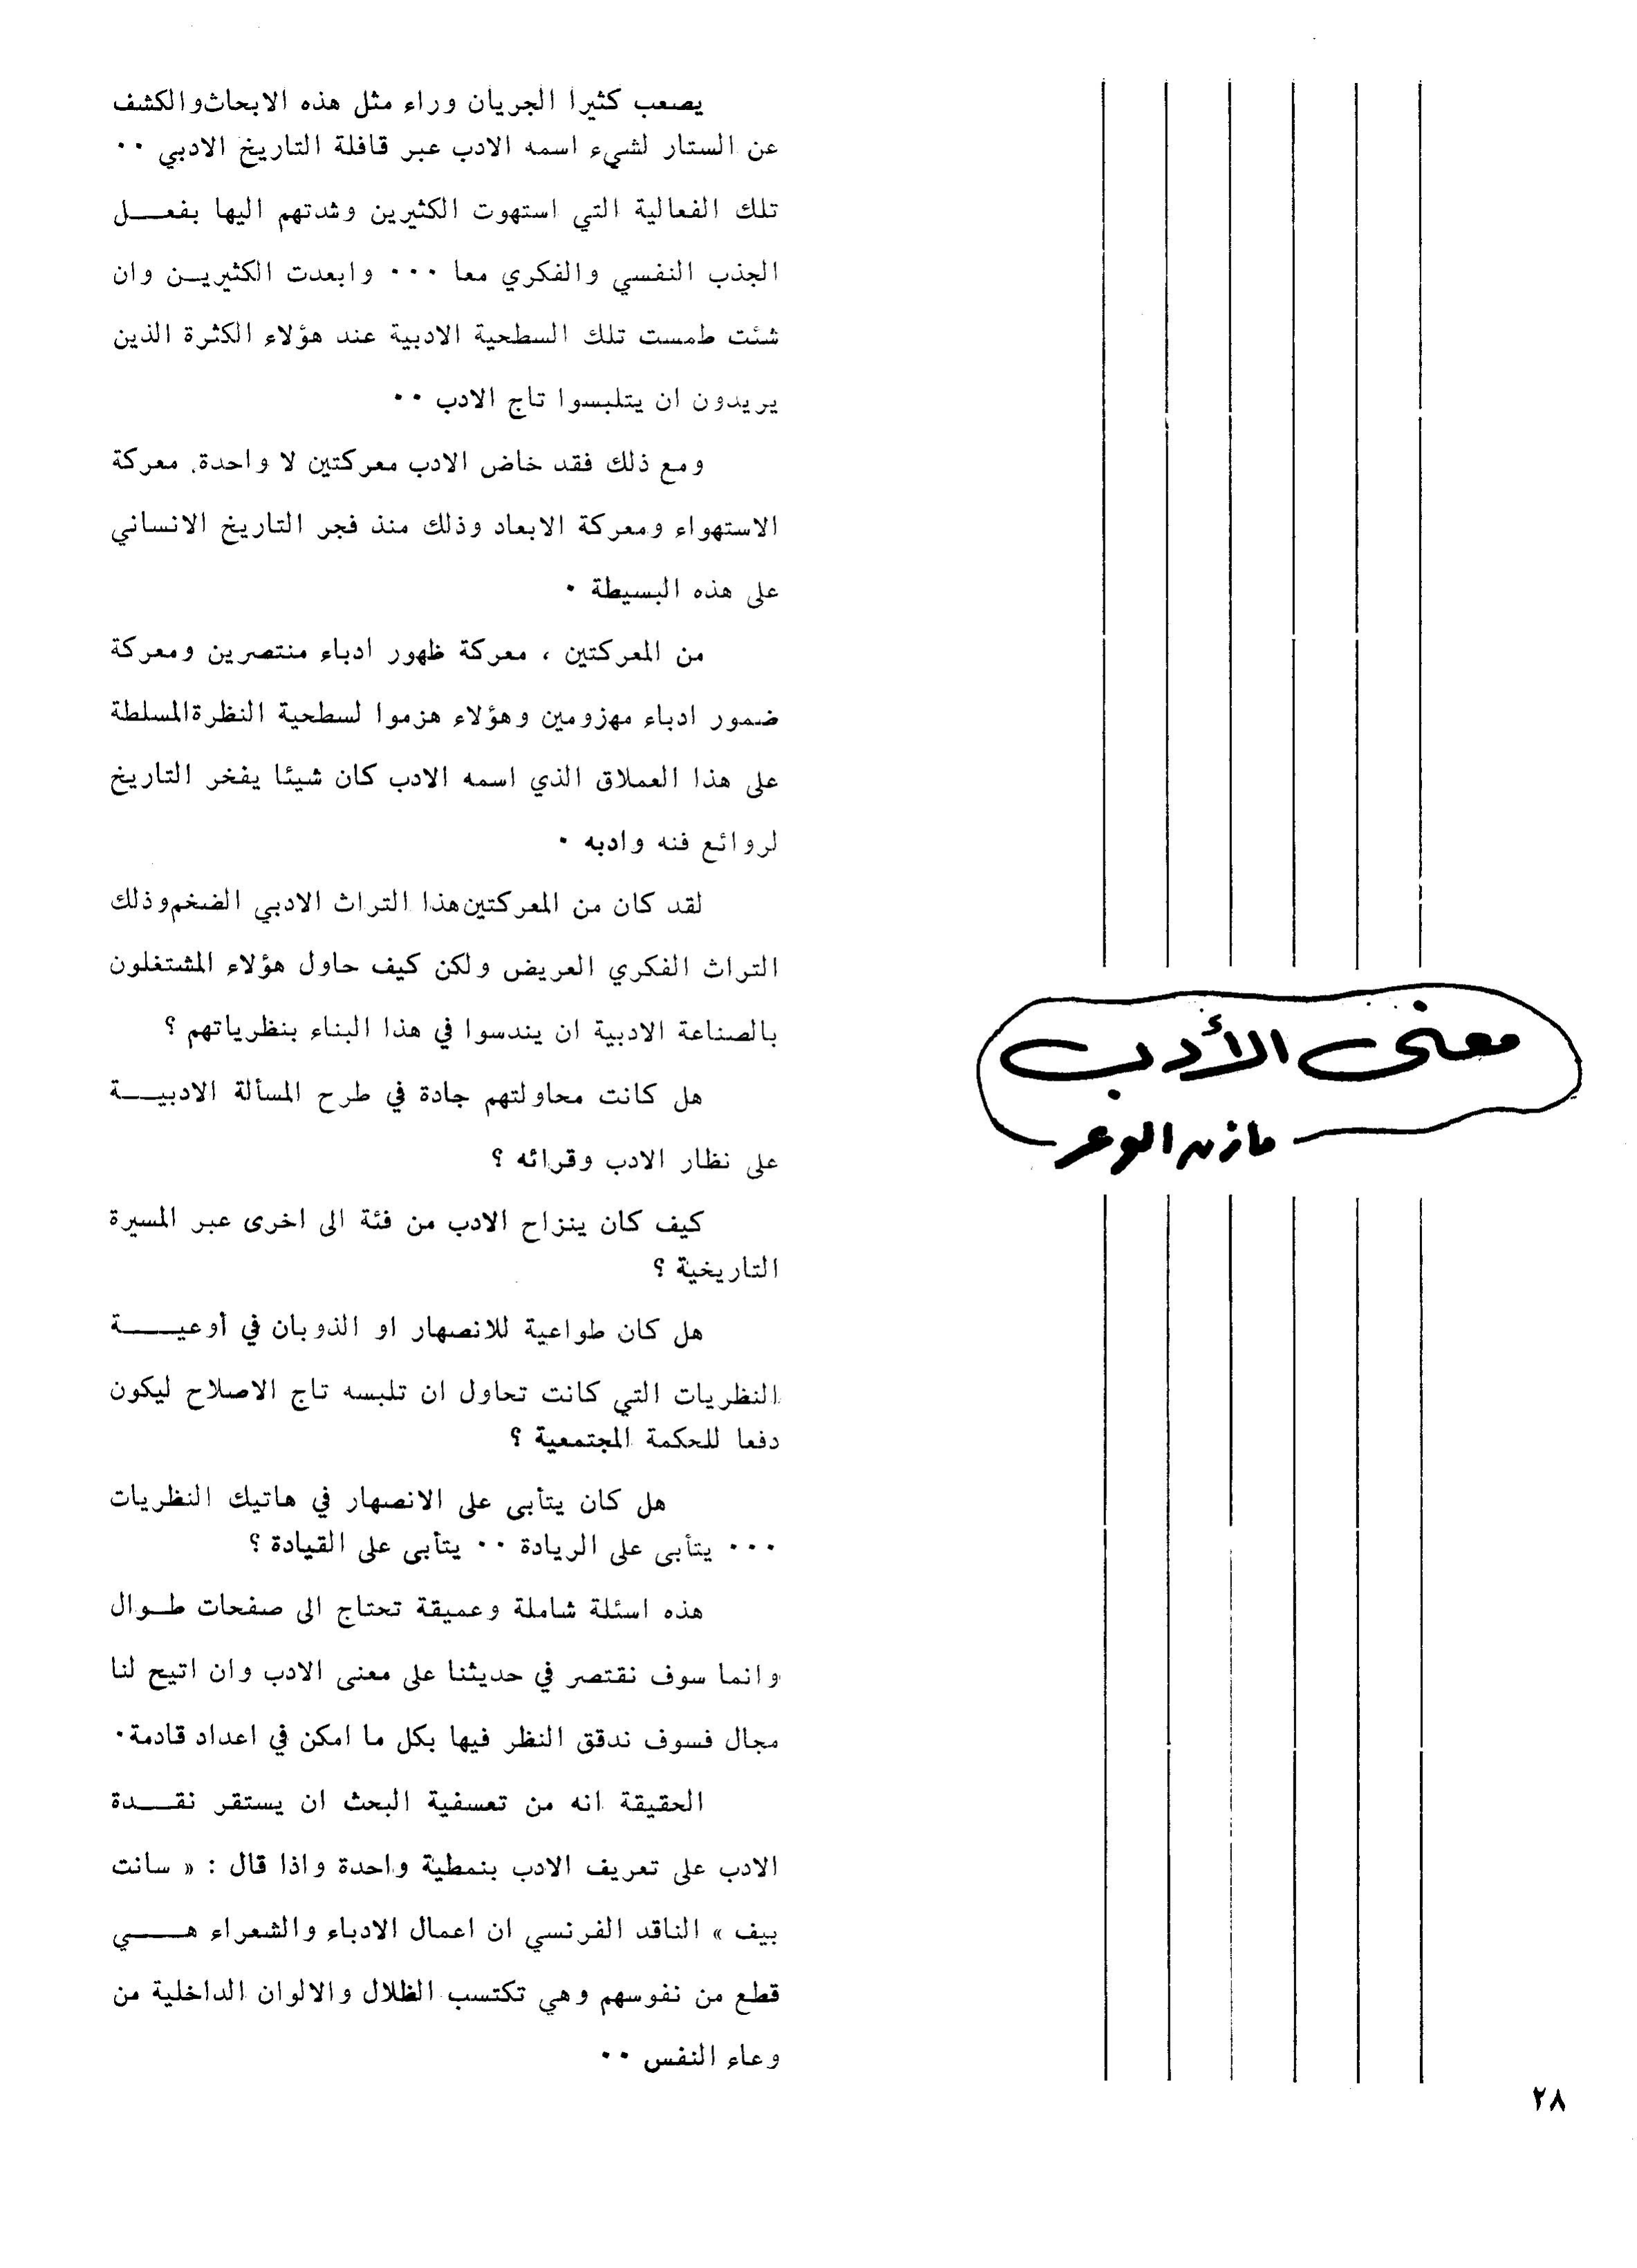 معنى الأدب
مازن الوعر
يصعب كثيرا الجريان وراء مثل هذه الابحاث والكشف
عن الستار لشيء اسمه الادب عبر قافلة التاريخ الادبي ٠٠
تلك الفعالية التي استهوت الكثيرين وشدتهم اليها بفعـــل
الجذب النفسي والفكري معا ٠٠٠ وابعدت الكثيريـن وان
شئت طمست تلك السطحية الادبية عند هؤلاء الكثرة الذين
يريدون ان يتلبسوا تاج الادب ٠٠
ومع ذلك فقد خاض الادب معركتين لا واحدة. معركة
الاستهواء ومعركة الابعاد وذلك منذ فجر التاريخ الانساني
على هذه البسيطة ٠
من المعركتين ، معركة ظهور ادباء منتصرين ومعركة
ضمور ادباء مهزومين وهؤلاء هزموا لسطحية النظرة المسلطة
على هذا العملاق الذي اسمه الادب كان شيئا يفخر التاريخ
لروائع فنه وادبه ٠
لقد كان من المعركتين هذا التراث الادبي الضخم وذلك
التراث الفكري العريض ولكن كيف حاول هؤلاء المشتغلون
بالصناعة الادبية ان يندسوا في هذا البناء بنظرياتهم ؟
هل كانت محاولتهم جادة في طرح المسألة الادبيـــة
على نظار الادب وقرائه ؟
كيف كان ينزاح الادب من فئة الى اخرى عبر المسيرة
التاريخية ؟
هل كان طواعية للانصهار او الذوبان في أوعيـــة
النظريات التي كانت تحاول ان تلبسه تاج الاصلاح ليكون
دفعا للحكمة المجتمعية ؟
هل كان يتأبى على الانصهار في هاتيك النظريات
٠٠٠ يتأبى على الريادة ٠٠ يتأبى على القيادة ؟
هذه اسئلة شاملة وعميقة تحتاج الى صفحات طـوال
وانما سوف نقتصر في حديثنا على معنى الادب وان اتيح لنا
مجال فسوف ندقق النظر فيها بكل ما امكن في اعداد قادمة٠
الحقيقة انه من تعسفية البحث ان يستقر نقـــدة
الادب على تعريف الادب بنمطية واحدة واذا قال : « سانت
بيف » الناقد الفرنسي ان اعمال الادباء والشعراء هـــي
قطع من نفوسهم وهي تكتسب الظلال والالوان الداخلية من
وعاء النفس ٠٠
٢٨